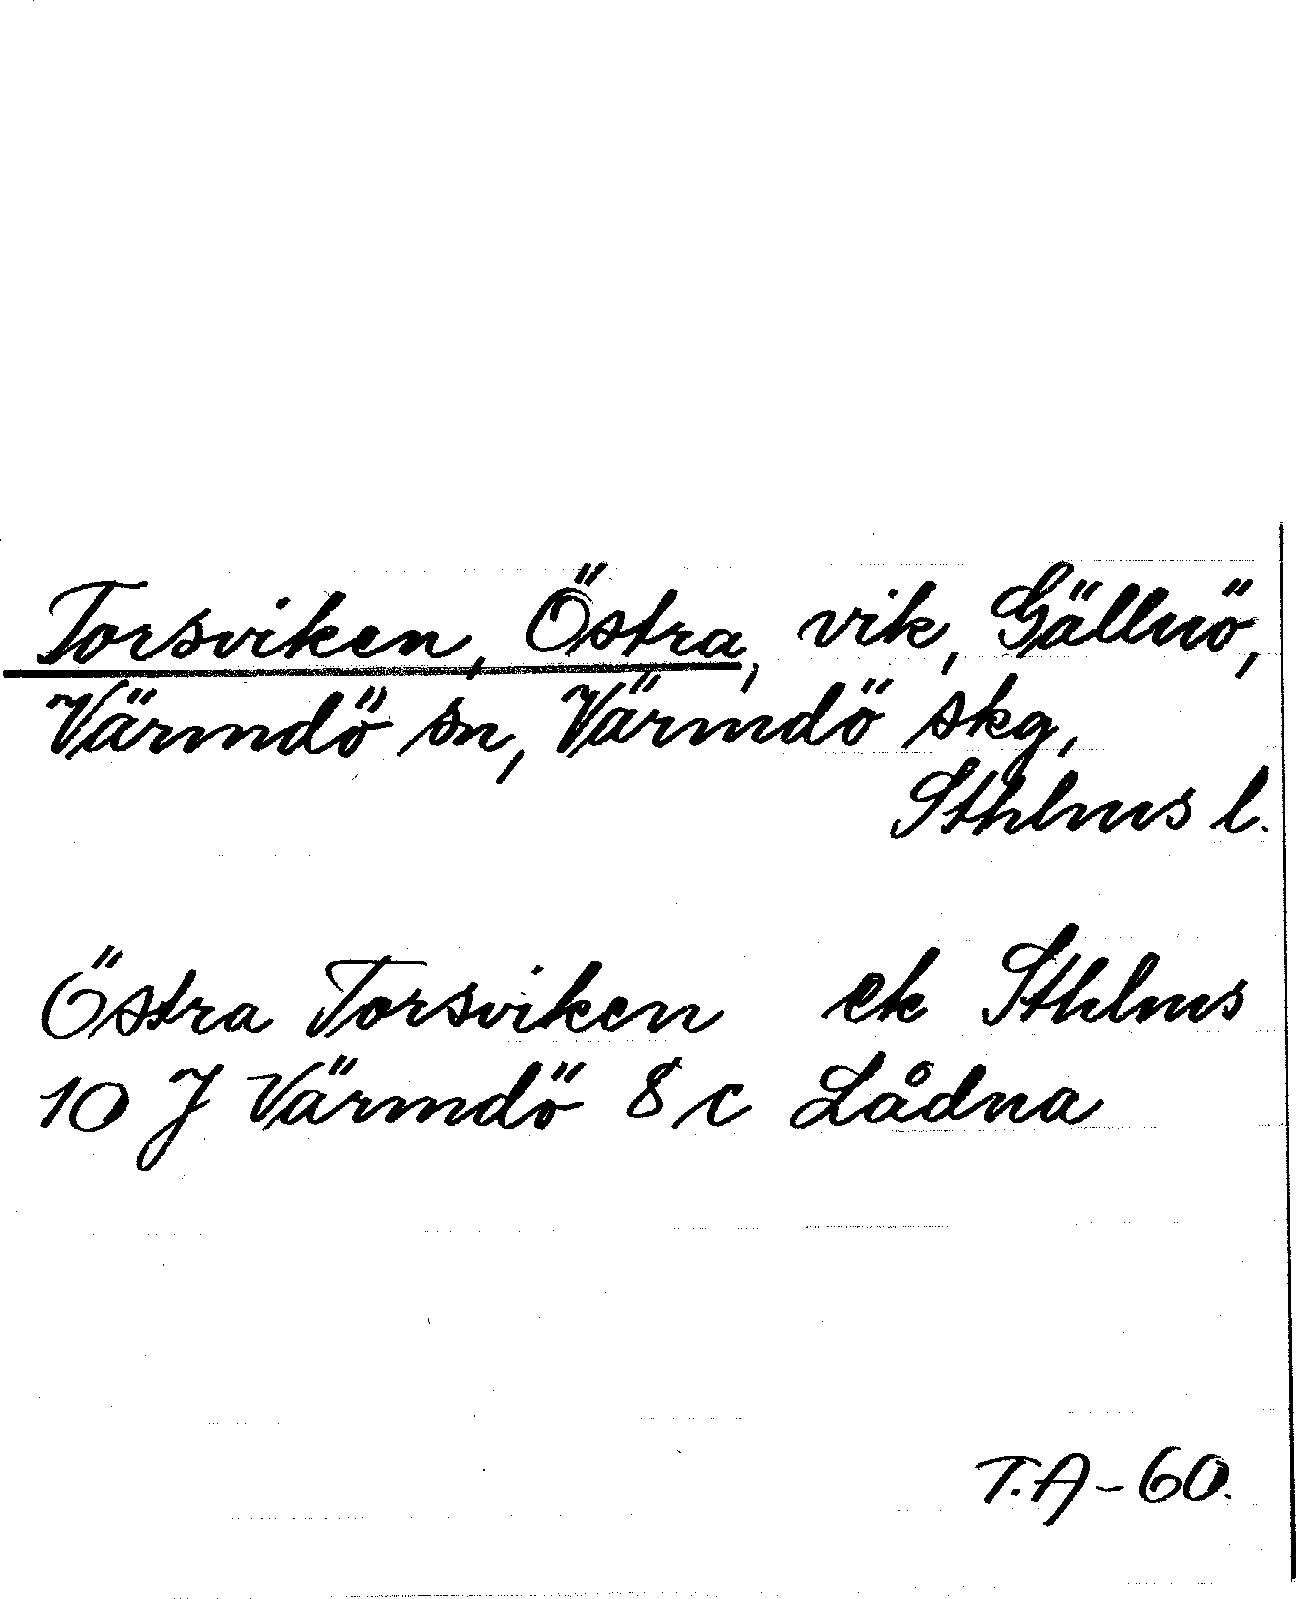 Torsviken, Östra, vik, Gällnö,
Värmdö sn, Värmdö skg,
Sthlms l.
Östra Torsviken ek Sthlms
10 J Värmdö 8 c Lådna
T.A-60.